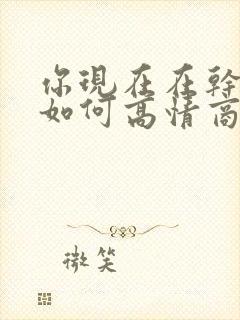 你現在在幹
如何高情商
微笑